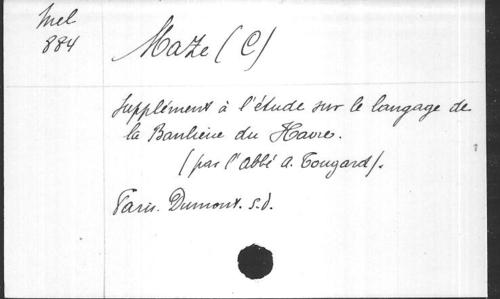 Mel
884
Maze (C)
Supplément à l'étude sur le langage de
la Banlieue du Havre.
(par l'abbé A. Tougard).
Paris. Dumont. s.d.